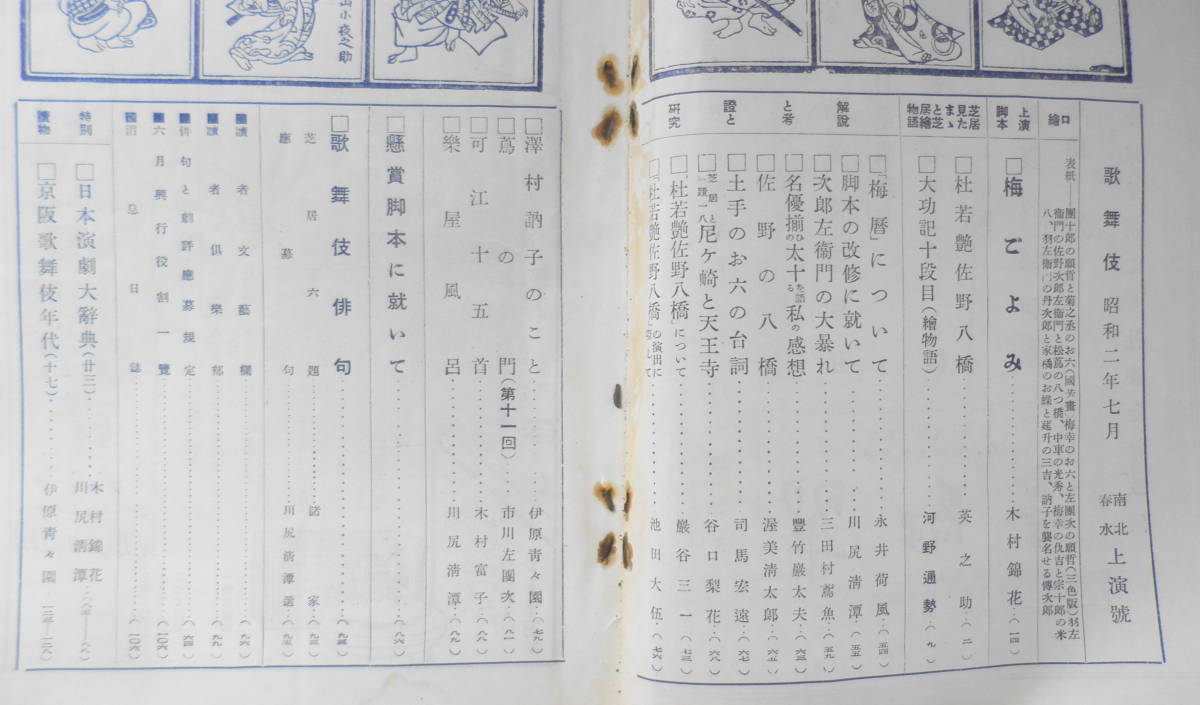 歌舞伎 昭和二年七月 南北 春水 上演號
口繪
表紙——團十郎の願哲と菊之丞のお六(國芳畫)梅幸のお六と左團次の願哲(三色版)羽左
衞門の佐野次郎左衞門と松蔦の八つ橋、中車の光秀、梅幸の仇吉と宗十郎の米
八、羽左衞門の丹次郎と家橘のお蝶と莚升の三吉、訥子を襲名せる傳次郎
上演脚本
□梅ごよみ……木村錦花…(一四)
芝居見たまゝと芝居繪物語
□杜若艷佐野八橋……英之助…(二)
□大功記十段目(繪物語)……河野通勢…(九)
解說と考證と研究
□「梅曆」について……永井荷風…(五四)
□脚本の改修に就いて……川尻淸潭…(五五)
□次郎左衞門の大暴れ……三田村鳶魚…(五九)
□名優揃ひの太十を語る私の感想……豐竹巖太夫…(六三)
□佐野の八橋……渥美淸太郎…(六五)
□土手のお六の台詞……司馬宏遠…(六七)
□芝居と講一八尼ケ崎と天王寺……谷口梨花…(六八)
□「杜若艷佐野八橋」について……巖谷三一…(七三)
□「杜若艷佐野八橋」の演出に……池田大伍…(七六)
□澤村訥子のこと……伊原靑々園…(七九)
□蔦の門(第十一回)……市川左團次…(八一)
□可江十五首……木村富子…(八八)
□樂屋風呂……川尻淸潭…(八九)
□懸賞脚本に就いて……(八六)
□歌舞伎俳句……(九三)
芝居六題……諸家…(九三)
應募句……川尻淸潭選…(九五)
者文藝欄……(九六)
者俱樂部……(九九)
俳句と劇評應募規定……(六四)
六月興行役割一覽……(一〇六)
消息日誌……(一〇六)
特別
□日本演劇大辭典(廿三)……木村錦花 川尻淸潭
讀物
□京阪歌舞伎年代(十七)……伊原靑々園
山小夜之助